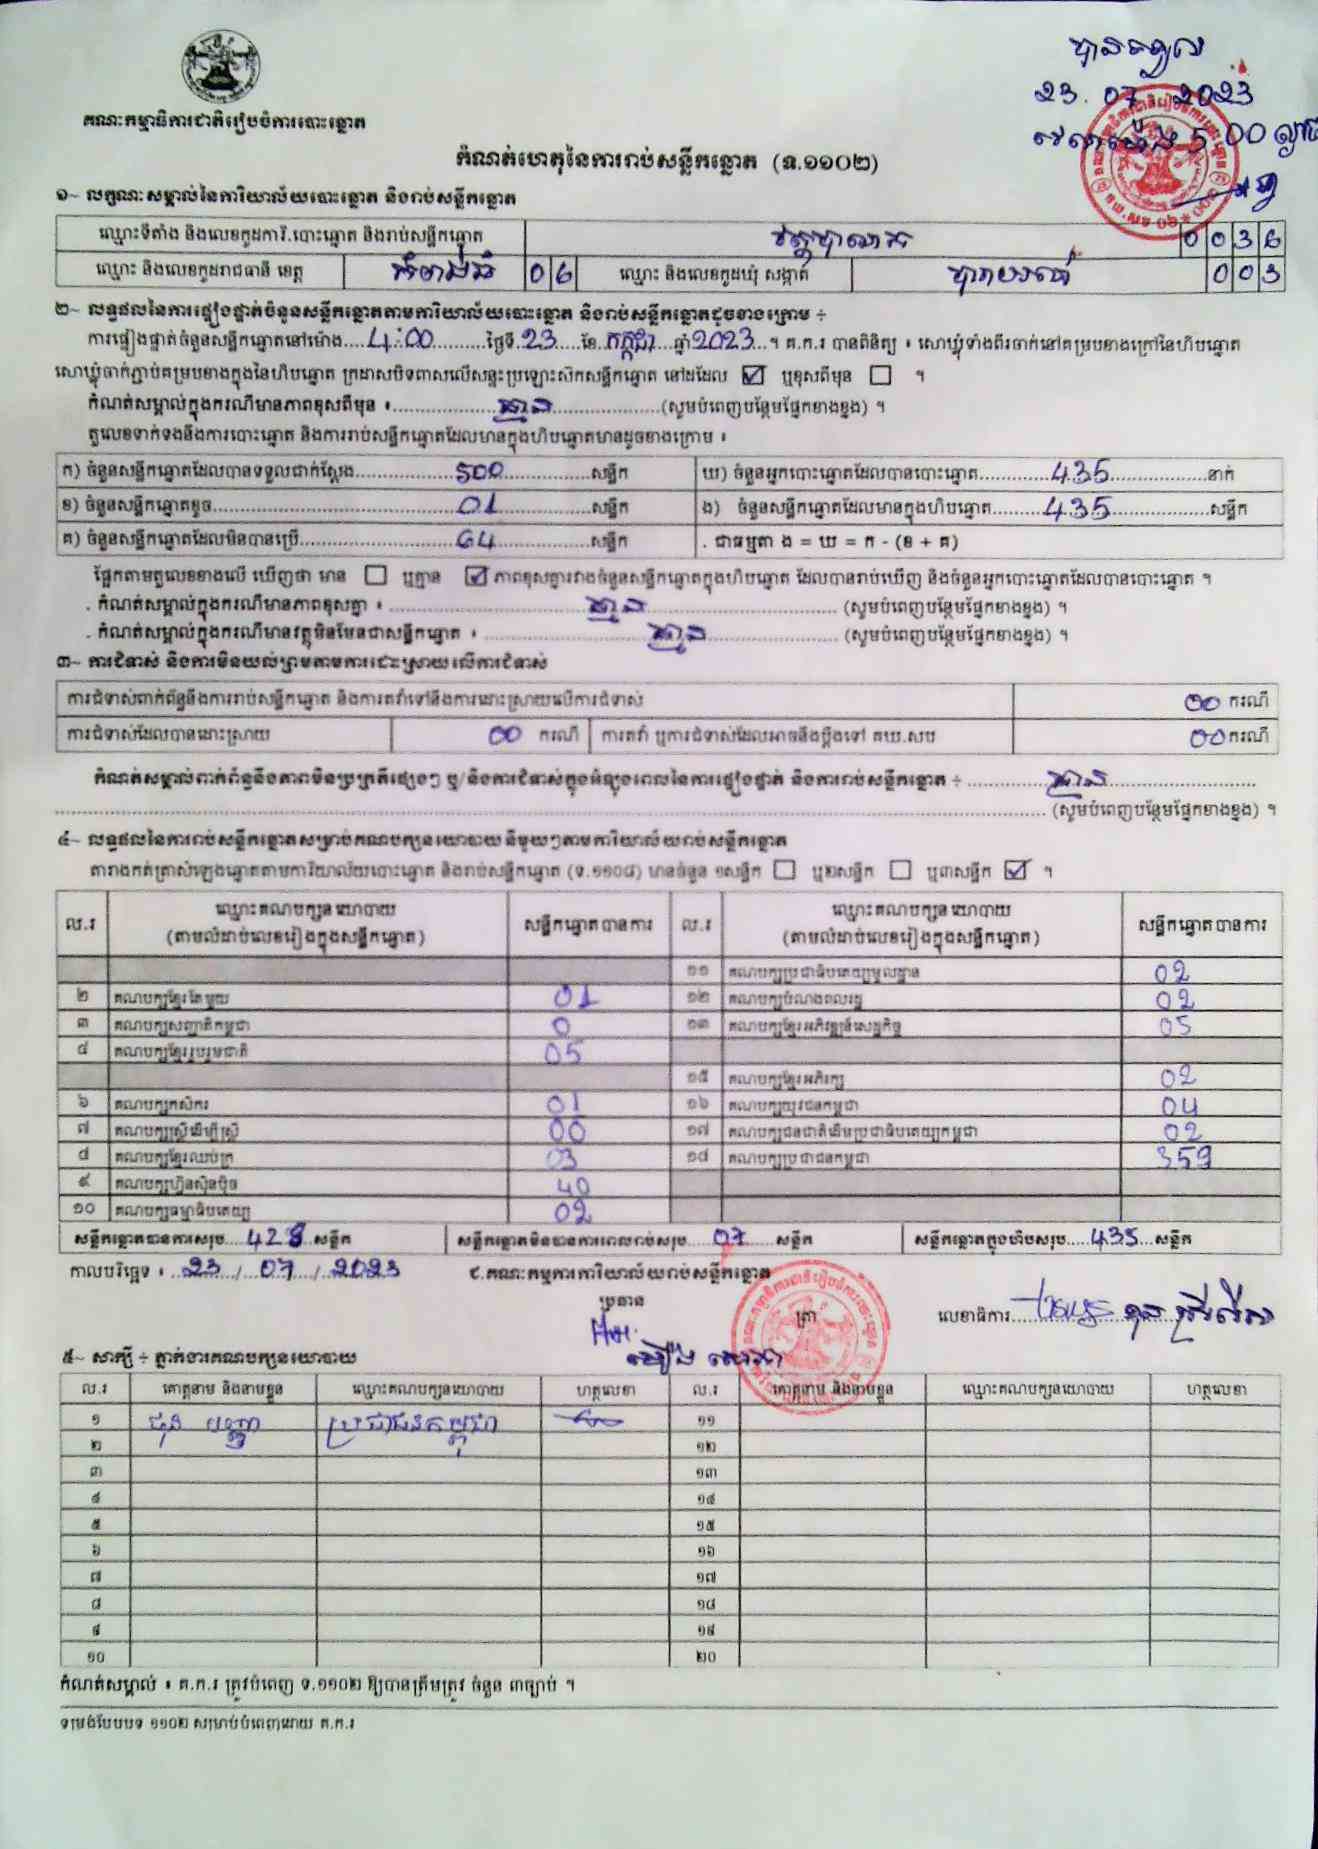 បានចម្លង
23. 07. 2023
វេលាម៉ោង 5:00 ល្ងាច
គណៈកម្មាធិការជាតិរៀបចំការបោះឆ្នោត
កំណត់ហេតុនៃការរាប់សន្លឹកឆ្នោត (ទ.១១០២)
១~ លក្ខណៈសម្គាល់នៃការិយាល័យបោះឆ្នោត និងរាប់សន្លឹកឆ្នោត
ឈ្មោះទីតាំង និងលេខកូដការិ.បោះឆ្នោត និងរាប់សន្លឹកឆ្នោត 0 0 3 6
ឈ្មោះ និងលេខកូដរាជធានី ខេត្ត កំពង់ធំ 0 6 ឈ្មោះ និងលេខកូដឃុំ សង្កាត់ 0 0 3
២~ លទ្ធផលនៃការផ្ទៀងផ្ទាត់ចំនួនសន្លឹកឆ្នោតតាមការិយាល័យបោះឆ្នោត និងរាប់សន្លឹកឆ្នោតដូចខាងក្រោម ÷
ការផ្ទៀងផ្ទាត់ចំនួនសន្លឹកឆ្នោតនៅម៉ោង....4:00.........ថ្ងៃទី.23.....ខែ.កក្កដា....ឆ្នាំ2023...។ គ.ក.រ បានពិនិត្យ ៖ សោឃ្លុំទាំងពីរចាក់នៅគម្របខាងក្រៅនៃហិបឆ្នោត
សោឃ្លុំចាក់ភ្ជាប់គម្របខាងក្នុងនៃហិបឆ្នោត ក្រដាសបិទពាសលើសន្ទះប្រឡោះសិកសន្លឹកឆ្នោត នៅដដែល ☑ ឬខុសពីមុន ☐ ។
កំណត់សម្គាល់ក្នុងករណីមានភាពខុសពីមុន ៖..................គ្មាន..................(សូមបំពេញបន្ថែមផ្នែកខាងខ្នង) ។
តួលេខទាក់ទងនឹងការបោះឆ្នោត និងការរាប់សន្លឹកឆ្នោតដែលមានក្នុងហិបឆ្នោតមានដូចខាងក្រោម ៖
ក) ចំនួនសន្លឹកឆ្នោតដែលបានទទួលជាក់ស្តែង..................500..................សន្លឹក ឃ) ចំនួនអ្នកបោះឆ្នោតដែលបានបោះឆ្នោត.............435..................នាក់
ខ) ចំនួនសន្លឹកឆ្នោតខូច..................01..................សន្លឹក ង) ចំនួនសន្លឹកឆ្នោតដែលមានក្នុងហិបឆ្នោត..........435..................សន្លឹក
គ) ចំនួនសន្លឹកឆ្នោតដែលមិនបានប្រើ..................64..................សន្លឹក . ជាធម្មតា ង = ឃ = ក - (ខ + គ)
ផ្អែកតាមតួលេខខាងលើ ឃើញថា មាន ☐ ឬគ្មាន ☑ ភាពខុសគ្នារវាងចំនួនសន្លឹកឆ្នោតក្នុងហិបឆ្នោត ដែលបានរាប់ឃើញ និងចំនួនអ្នកបោះឆ្នោតដែលបានបោះឆ្នោត ។
. កំណត់សម្គាល់ក្នុងករណីមានភាពខុសគ្នា ៖ ..................គ្មាន.................. (សូមបំពេញបន្ថែមផ្នែកខាងខ្នង) ។
. កំណត់សម្គាល់ក្នុងករណីមានវត្ថុមិនមែនជាសន្លឹកឆ្នោត ៖ ..................គ្មាន.................. (សូមបំពេញបន្ថែមផ្នែកខាងខ្នង) ។
៣~ ការជំទាស់ និងការមិនយល់ព្រមតាមការដោះស្រាយ លើការជំទាស់
ការជំទាស់ពាក់ព័ន្ធនឹងការរាប់សន្លឹកឆ្នោត និងការតវ៉ាទៅនឹងការដោះស្រាយលើការជំទាស់ 00 ករណី
ការជំទាស់ដែលបានដោះស្រាយ 00 ករណី ការតវ៉ា ឬការជំទាស់ដែលអាចនឹងប្តឹងទៅ គឃ.សប 00 ករណី
កំណត់សម្គាល់ពាក់ព័ន្ធនឹងភាពមិនប្រក្រតីផ្សេងៗ ឬ/និងការជំទាស់ក្នុងអំឡុងពេលនៃការផ្ទៀងផ្ទាត់ និងការរាប់សន្លឹកឆ្នោត ÷ ...........គ្មាន..................
(សូមបំពេញបន្ថែមផ្នែកខាងខ្នង) ។
៤~ លទ្ធផលនៃការរាប់សន្លឹកឆ្នោតសម្រាប់គណបក្សនយោបាយ នីមួយៗតាមការិយាល័យរាប់សន្លឹកឆ្នោត
តារាងកត់ត្រាសំឡេងឆ្នោតតាមការិយាល័យបោះឆ្នោត និងរាប់សន្លឹកឆ្នោត (ទ.១១០៨) មានចំនួន ១សន្លឹក ☐ ឬ២សន្លឹក ☐ ឬ៣សន្លឹក ☑ ។
ល.រ ឈ្មោះគណបក្សនយោបាយ (តាមលំដាប់លេខរៀងក្នុងសន្លឹកឆ្នោត) សន្លឹកឆ្នោតបានការ ល.រ ឈ្មោះគណបក្សនយោបាយ (តាមលំដាប់លេខរៀងក្នុងសន្លឹកឆ្នោត) សន្លឹកឆ្នោតបានការ
១១ គណបក្សប្រជាធិបតេយ្យមូលដ្ឋាន 02
២ គណបក្សខ្មែរតែមួយ 01 ១២ គណបក្សបំណងពលរដ្ឋ 02
៣ គណបក្សសញ្ជាតិកម្ពុជា 0 ១៣ គណបក្សខ្មែរអភិវឌ្ឍន៍សេដ្ឋកិច្ច 05
៤ គណបក្សខ្មែររួបរួមជាតិ 05
១៥ គណបក្សខ្មែរអភិរក្ស 02
៦ គណបក្សកសិករ 01 ១៦ គណបក្សយុវជនកម្ពុជា 04
៧ គណបក្សស្ត្រីដើម្បីស្ត្រី 00 ១៧ គណបក្សជនជាតិដើមប្រជាធិបតេយ្យកម្ពុជា 02
៨ គណបក្សខ្មែរឈប់ក្រ 03 ១៨ គណបក្សប្រជាជនកម្ពុជា 359
៩ គណបក្សហ៊្វុនស៊ិនប៉ិច 40
១០ គណបក្សធម្មាធិបតេយ្យ 02
សន្លឹកឆ្នោតបានការសរុប....428..សន្លឹក សន្លឹកឆ្នោតមិនបានការពេលរាប់សរុប....07......សន្លឹក សន្លឹកឆ្នោតក្នុងហិបសរុប.....435...សន្លឹក
កាលបរិច្ឆេទ ៖ ..23.../...07.../..2023 ៥.គណៈកម្មការការិយាល័យរាប់សន្លឹកឆ្នោត
ប្រធាន ត្រា លេខាធិការ
៥~ សាក្សី ÷ ភ្នាក់ងារគណបក្សនយោបាយ
ល.រ គោត្តនាម និងនាមខ្លួន ឈ្មោះគណបក្សនយោបាយ ហត្ថលេខា ល.រ គោត្តនាម និងនាមខ្លួន ឈ្មោះគណបក្សនយោបាយ ហត្ថលេខា
១ ជុន បញ្ញា ប្រជាជនកម្ពុជា ១១
២ ១២
៣ ១៣
៤ ១៤
៥ ១៥
៦ ១៦
៧ ១៧
៨ ១៨
៩ ១៩
១០ ២០
កំណត់សម្គាល់ ៖ គ.ក.រ ត្រូវបំពេញ ទ.១១០២ ឱ្យបានត្រឹមត្រូវ ចំនួន ៣ច្បាប់ ។
ទម្រង់បែបបទ ១១០២ សម្រាប់បំពេញដោយ គ.ក.រ